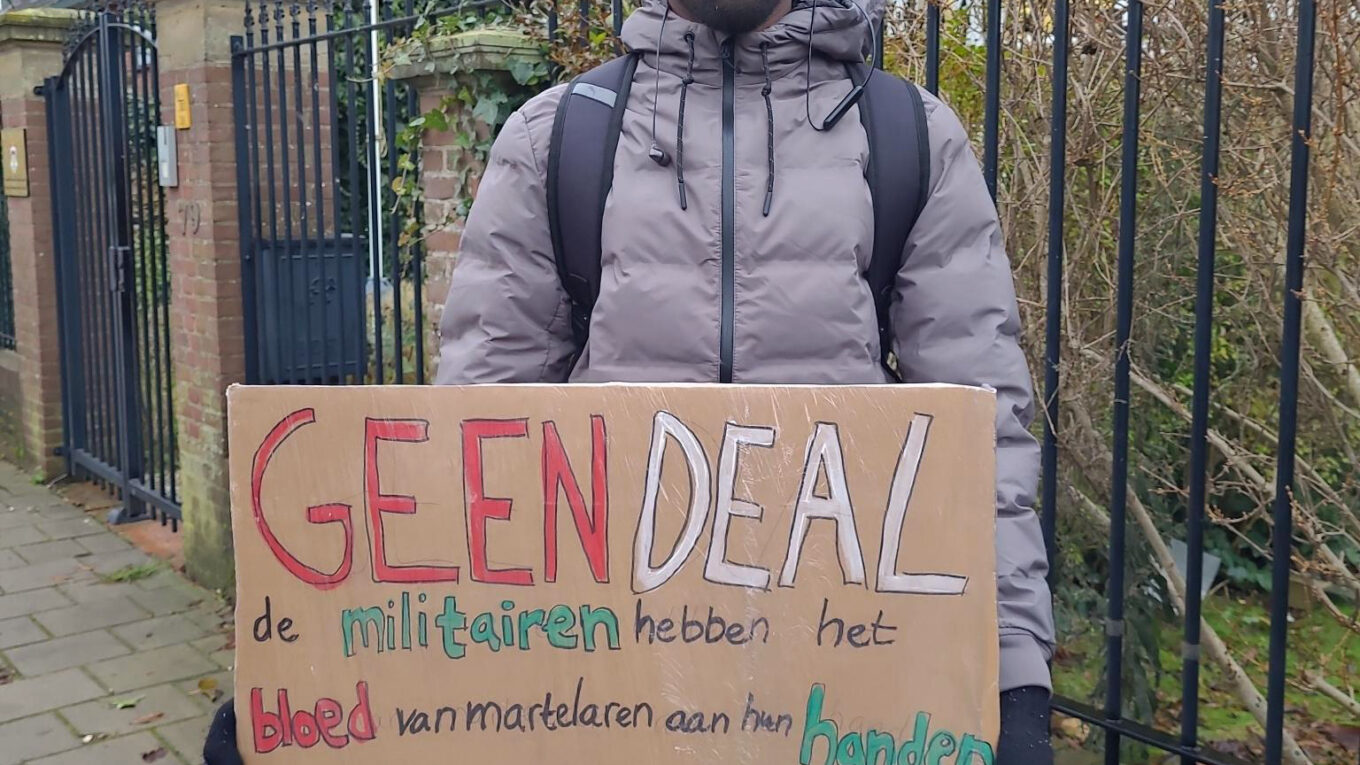 79
GEEN DEAL
de militairen hebben het
bloed van martelaren aan hun handen